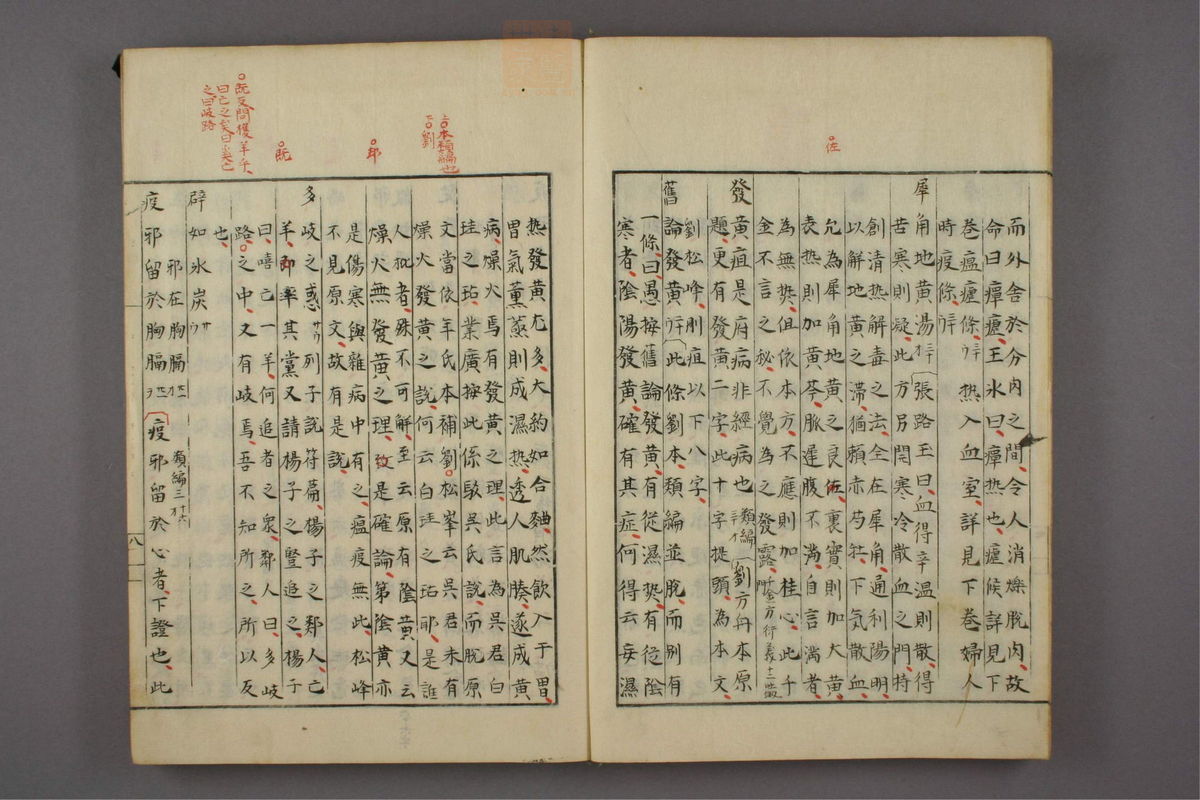 佐
而外舍於分肉之間令人消爍脫肉故
命曰癉瘧王氷曰癉熱也瘧候詳見下
卷瘟瘧條 熱入血室詳見下卷婦人
時疫條
犀角地黃湯 張路玉曰血得辛溫則散得
苦寒則凝此方另開寒冷散血之門特
創清熱解毒之法全在犀角通利陽明
以解地黃之滯猶賴赤芍 下气散血
允為犀角地黃之良佐裏實則加大黃
表熱則加黃芩脈遲腹不滿自言滿者
為無熱但依本方不應則加桂心此千
金不言之秘不覺為之發露 千金方衍義十二
發黃疸是府病非經病也 類編 劉方舟本原
題更有發黃二字此十字提頭為本文
劉松峰刪疸以下八字
舊論發黃 此條劉本類編並脫而別有
一條曰愚按舊論發黃有從濕熱有從陰
寒者陰陽發黃確有其症何得云妄濕
上○本類編也
下○劉
耶
既
既反問獲羊乎
曰亡之矣曰奚亡
之曰岐路
热發黃尤多大約如合麯然飲入于胃
胃氣薰蒸則成濕热透人肌腠遂成黃
病燥火焉有發黃之理此言為吳君白
珪之玷業廣按此係駁吳氏說而脫原
文當依年氏本補劉松峯云吳君未有
燥火發黃之說何云白珪之玷耶是誰
人批者殊不可解至云原有陰黃又云
燥火無發黃之理致是確論第陰黃亦
是傷寒與雜病中有之瘟疫無此松峰
不見原文故有是說
多岐之惑 列子說符篇楊子之鄰人亡
羊即率其黨又請楊子之豎追之楊子
曰嘻亡一羊何追者之衆鄰人曰多岐
路之中又有岐焉吾不知所之所以反
也
辟如氷炭
邪在胸膈 類編三
疫邪留於胸膈 疫邪留於心者下證也此
八